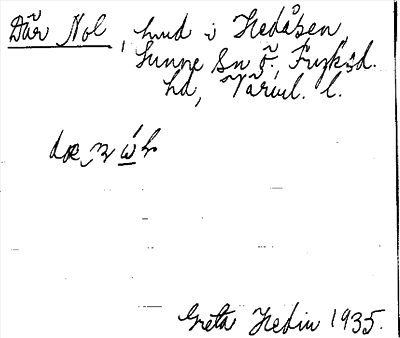 Där Nol, hmd i Hedåsen,
Sunne sn ö., Fryksd.
hd, Värml. l.
Greta Hedin 1935.